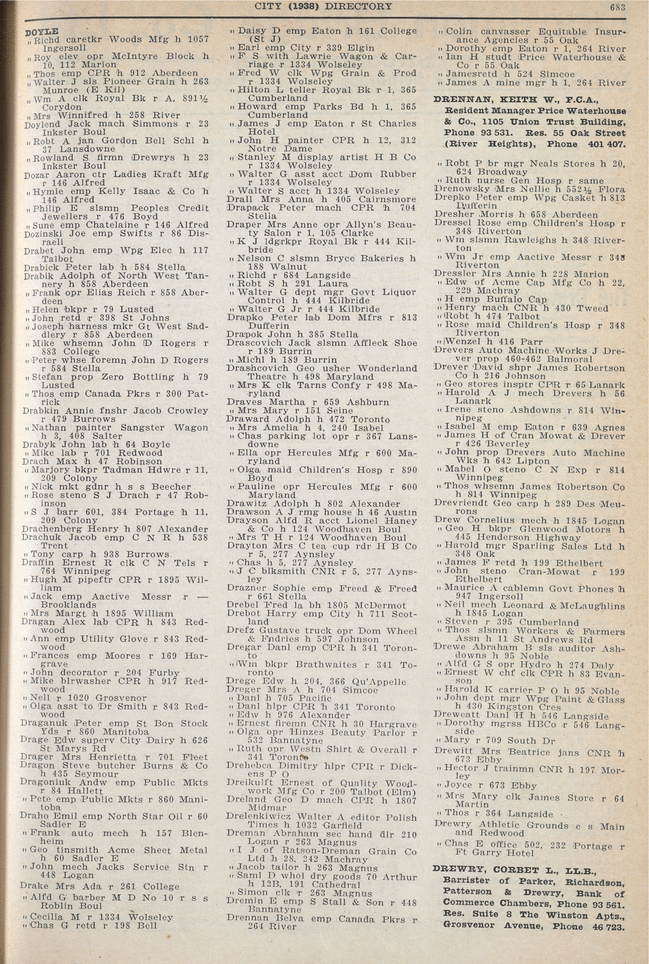 CITY (1938) DIRECTORY 683
DOYLE
„ Richd caretkr Woods Mfg h 1057
Ingersoll
„ Roy elev opr McIntyre Block h
10, 112 Marion
„ Thos emp CPR h 912 Aberdeen
„ Walter J sls Pioneer Grain h 263
Munroe (E Kil)
„ Wm A clk Royal Bk r A, 891½
Corydon
„ Mrs Winnifred h 258 River
Doylend Jack mach Simmons r 23
Inkster Boul
„ Robt A jan Gordon Bell Schl h
37 Lansdowne
„ Rowland S firmn Drewrys h 23
Inkster Boul
Dozar Aaron ctr Ladies Kraft Mfg
r 146 Alfred
„ Hymie emp Kelly Isaac & Co h
146 Alfred
„ Philip E slsmn Peoples Credit
Jewellers r 476 Boyd
„ Sune emp Chatelaine r 146 Alfred
Dozinski Joe emp Swifts r 86 Dis-
raeli
Drabet John emp Wpg Elec h 117
Talbot
Drabick Peter lab h 584 Stella
Drabik Adolph of North West Tan-
nery h 858 Aberdeen
„ Frank opr Elias Reich r 858 Aber-
deen
„ Helen bkpr r 79 Lusted
„ John retd r 398 St Johns
„ Joseph harness mkr Gt West Sad-
dlery r 858 Aberdeen
„ Mike whsemn John D Rogers r
883 College
„ Peter whse foremn John D Rogers
r 584 Stella
„ Stefan prop Zero Bottling h 79
Lusted
„ Thos emp Canada Pkrs r 300 Pat-
rick
Drabkin Annie fnshr Jacob Crowley
r 479 Burrows
„ Nathan painter Sangster Wagon
h 3, 408 Salter
Drabyk John lab h 64 Boyle
„ Mike lab r 701 Redwood
Drach Max h 47 Robinson
„ Marjory bkpr Tadman Hdwre r 11,
209 Colony
„ Nick mkt gdnr h s s Beecher
„ Rose steno S J Drach r 47 Rob-
inson
„ S J barr 601, 384 Portage h 11,
209 Colony
Drachenberg Henry h 807 Alexander
Drachuk Jacob emp C N R h 538
Trent
„ Tony carp h 938 Burrows
Draffin Ernest R clk C N Tels r
764 Winnipeg
„ Hugh M pipeftr CPR r 1895 Wil-
liam
„ Jack emp Aactive Messr r —
Brooklands
„ Mrs Margt h 1895 William
Dragan Alex lab CPR h 843 Red-
wood
„ Ann emp Utility Glove r 843 Red-
wood
„ Frances emp Moores r 169 Har-
grave
„ John decorator r 204 Furby
„ Mike blrwasher CPR h 917 Red-
wood
„ Nell r 1020 Grosvenor
„ Olga asst to Dr Smith r 843 Red-
wood
Draganuk Peter emp St Bon Stock
Yds r 860 Manitoba
Drage Edw superv City Dairy h 626
St Marys Rd
Drager Mrs Henrietta r 701 Fleet
Dragon Steve butcher Burns & Co
h 435 Seymour
Dragoniuk Andw emp Public Mkts
r 84 Hallett
„ Pete emp Public Mkts r 860 Mani-
toba
Draho Emil emp North Star Oil r 60
Sadler E
„ Frank auto mech h 157 Blen-
heim
„ Geo tinsmith Acme Sheet Metal
h 60 Sadler E
„ John mech Jacks Service Stn r
448 Logan
Drake Mrs Ada r 261 College
„ Alfd G barber M D No 10 r s s
Roblin Boul
„ Cecilia M r 1334 Wolseley
„ Chas G retd r 198 Bell
„ Daisy D emp Eaton h 161 College
(St J)
„ Earl emp City r 339 Elgin
„ F S with Lawrie Wagon & Car-
riage r 1334 Wolseley
„ Fred W clk Wpg Grain & Prod
r 1334 Wolseley
„ Hilton L teller Royal Bk r 1, 365
Cumberland
„ Howard emp Parks Bd h 1, 365
Cumberland
„ James J emp Eaton r St Charles
Hotel
„ John H painter CPR h 12, 312
Notre Dame
„ Stanley M display artist H B Co
r 1334 Wolseley
„ Walter G asst acct Dom Rubber
r 1334 Wolseley
„ Walter S acct h 1334 Wolseley
Drall Mrs Anna h 405 Cairnsmore
Drapack Peter mach CPR h 704
Stella
Draper Mrs Anne opr Allyn's Beau-
ty Salon r 1, 105 Clarke
„ K J ldgrkpr Royal Bk r 444 Kil-
bride
„ Nelson C slsmn Bryce Bakeries h
188 Walnut
„ Richd r 684 Langside
„ Robt S h 291 Laura
„ Walter G dept mgr Govt Liquor
Control h 444 Kilbride
„ Walter G Jr r 444 Kilbride
Drapko Peter lab Dom Mfrs r 813
Dufferin
Drapok John h 385 Stella
Drascovich Jack slsmn Affleck Shoe
r 189 Burrin
„ Michl h 189 Burrin
Drashovich Geo usher Wonderland
Theatre h 498 Maryland
„ Mrs K clk Tarns Confy r 498 Ma-
ryland
Draves Martha r 659 Ashburn
„ Mrs Mary r 151 Seine
Draward Adolph h 472 Toronto
„ Mrs Amelia h 4, 240 Isabel
„ Chas parking lot opr r 367 Lans-
downe
„ Ella opr Hercules Mfg r 600 Ma-
ryland
„ Olga maid Children's Hosp r 890
Boyd
„ Pauline opr Hercules Mfg r 600
Maryland
Drawitz Adolph h 802 Alexander
Drawson A J rmg house h 46 Austin
Drayson Alfd R acct Lionel Haney
& Co h 124 Woodhaven Boul
„ Mrs T H r 124 Woodhaven Boul
Drayton Mrs C tea cup rdr H B Co
r 5, 277 Aynsley
„ Chas h 5, 277 Aynsley
„ J C blksmith CNR r 5, 277 Ayns-
ley
Drazner Sophie emp Freed & Freed
r 661 Stella
Drebel Fred la bh 1805 McDermot
Drebot Harry emp City h 711 Scot-
land
Drefz Gustave truck opr Dom Wheel
& Fndries h 597 Johnson
Dregar Danl emp CPR h 341 Toron-
to
„ Wm bkpr Brathwaites r 341 To-
ronto
Drege Edw h 204, 366 Qu'Appelle
Dreger Mrs A h 704 Simcoe
„ Danl h 705 Pacific
„ Danl hlpr CPR h 341 Toronto
„ Edw h 976 Alexander
„ Ernest firemn CNR h 30 Hargrave
„ Olga opr Hinzes Beauty Parlor r
532 Bannatyne
„ Ruth opr Westn Shirt & Overall r
341 Toronto
Dreheba Dimitry hlpr CPR r Dick-
ens P O
Dreikulft Ernest of Quality Wood-
work Mfg Co r 200 Talbot (Elm)
Dreland Geo D mach CPR h 1807
Midmar
Drelenkiewicz Walter A editor Polish
Times h 1032 Garfield
Dreman Abraham sec hand dlr 210
Logan r 263 Magnus
„ I J of Ratson-Dreman Grain Co
Ltd h 28, 242 Machray
„ Jacob tailor h 263 Magnus
„ Saml D whol dry goods 70 Arthur
h 12B, 191 Cathedral
„ Simon clk r 263 Magnus
Dremin E emp S Stall & Son r 448
Bannatyne
Drennan Belva emp Canada Pkrs r
264 River
„ Colin canvasser Equitable Insur-
ance Agencies r 55 Oak
„ Dorothy emp Eaton r 1, 264 River
„ Ian H studt Price Waterhouse &
Co r 55 Oak
„ Jamesretd h 524 Simcoe
„ James A mine mgr h 1, 264 River
DRENNAN, KEITH W., F.C.A.,
Resident Manager Price Waterhouse
& Co., 1105 Union Trust Building,
Phone 93 531. Res. 55 Oak Street
(River Heights), Phone 401 407.
„ Robt P br mgr Neals Stores h 20,
624 Broadway
„ Ruth nurse Gen Hosp r same
Drenowsky Mrs Nellie h 552½ Flora
Drepko Peter emp Wpg Casket h 813
Dufferin
Dresher Morris h 658 Aberdeen
Dressel Rose emp Children's Hosp r
348 Riverton
„ Wm slsmn Rawleighs h 348 River-
ton
„ Wm Jr emp Aactive Messr r 348
Riverton
Dressler Mrs Annie h 228 Marion
„ Edw of Acme Cap Mfg Co h 22,
229 Machray
„ H emp Buffalo Cap
„ Henry mach CNR h 430 Tweed
„ Robt h 474 Talbot
„ Rose maid Children's Hosp r 348
Riverton
„ Wenzel h 416 Parr
Drevers Auto Machine Works J Dre-
ver prop 460-462 Balmoral
Drever David shpr James Robertson
Co h 216 Johnson
„ Geo stores insptr CPR r 65 Lanark
„ Harold A J mech Drevers h 56
Lanark
„ Irene steno Ashdowns r 814 Win-
nipeg
„ Isabel M emp Eaton r 639 Agnes
„ James H of Cran Mowat & Drever
r 426 Beverley
„ John prop Drevers Auto Machine
Wks h 62 Lipton
„ Mabel O steno C N Exp r 814
Winnipeg
„ Thos whsemn James Robertson Co
h 814 Winnipeg
Drevriendt Geo carp h 289 Des Meu-
rons
Drew Cornelius mech h 1845 Logan
„ Geo H bkpr Glenwood Motors h
445 Henderson Highway
„ Harold mgr Sparling Sales Ltd h
348 Oak
„ James F retd h 199 Ethelbert
„ John steno Cran-Mowat r 199
Ethelbert
„ Maurice A cablemn Govt Phones h
947 Ingersoll
„ Neil mech Leonard & McLaughlins
h 1845 Logan
„ Steven r 395 Cumberland
„ Thos slsmn Workers & Farmers
Assn h 11 St Andrews Rd
Drewe Abraham B sls auditor Ash-
downs h 95 Noble
„ Alfd G S opr Hydro h 274 Daly
„ Ernest W chf clk CPR h 83 Evan-
son
„ Harold K carrier P O h 95 Noble
„ John dept mgr Wpg Paint & Glass
h 430 Kingston Cres
Drewcatt Danl H h 546 Langside
„ Dorothy mgrss HBCo r 546 Lang-
side
„ Mary r 709 South Dr
Drewitt Mrs Beatrice jans CNR h
673 Ebby
„ Hector J trainmn CNR h 197 Mor-
ley
„ Joyce r 673 Ebby
„ Mrs Mary clk James Store r 64
Martin
„ Thos r 364 Langside
Drewry Athletic Grounds e s Main
and Redwood
„ Chas E office 502, 232 Portage r
Ft Garry Hotel
DREWRY, CORBET L., LL.B.,
Barrister of Parker, Richardson,
Patterson & Drewry, Bank of
Commerce Chambers, Phone 93 561.
Res. Suite 8 The Winston Apts.,
Grosvenor Avenue, Phone 46 723.